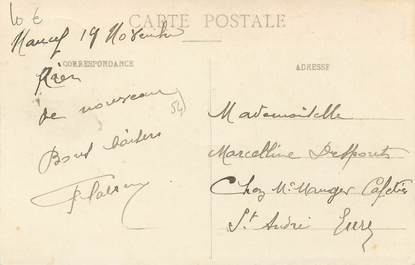 10 €
CARTE POSTALE
Nancy 19 Novembre
CORRESPONDANCE
ADRESSE
Rien
de nouveau
54
Bons baisers
Mademoiselle
Marcelline Desponts
Chez Mr Mauger Cafetier
St André Eure